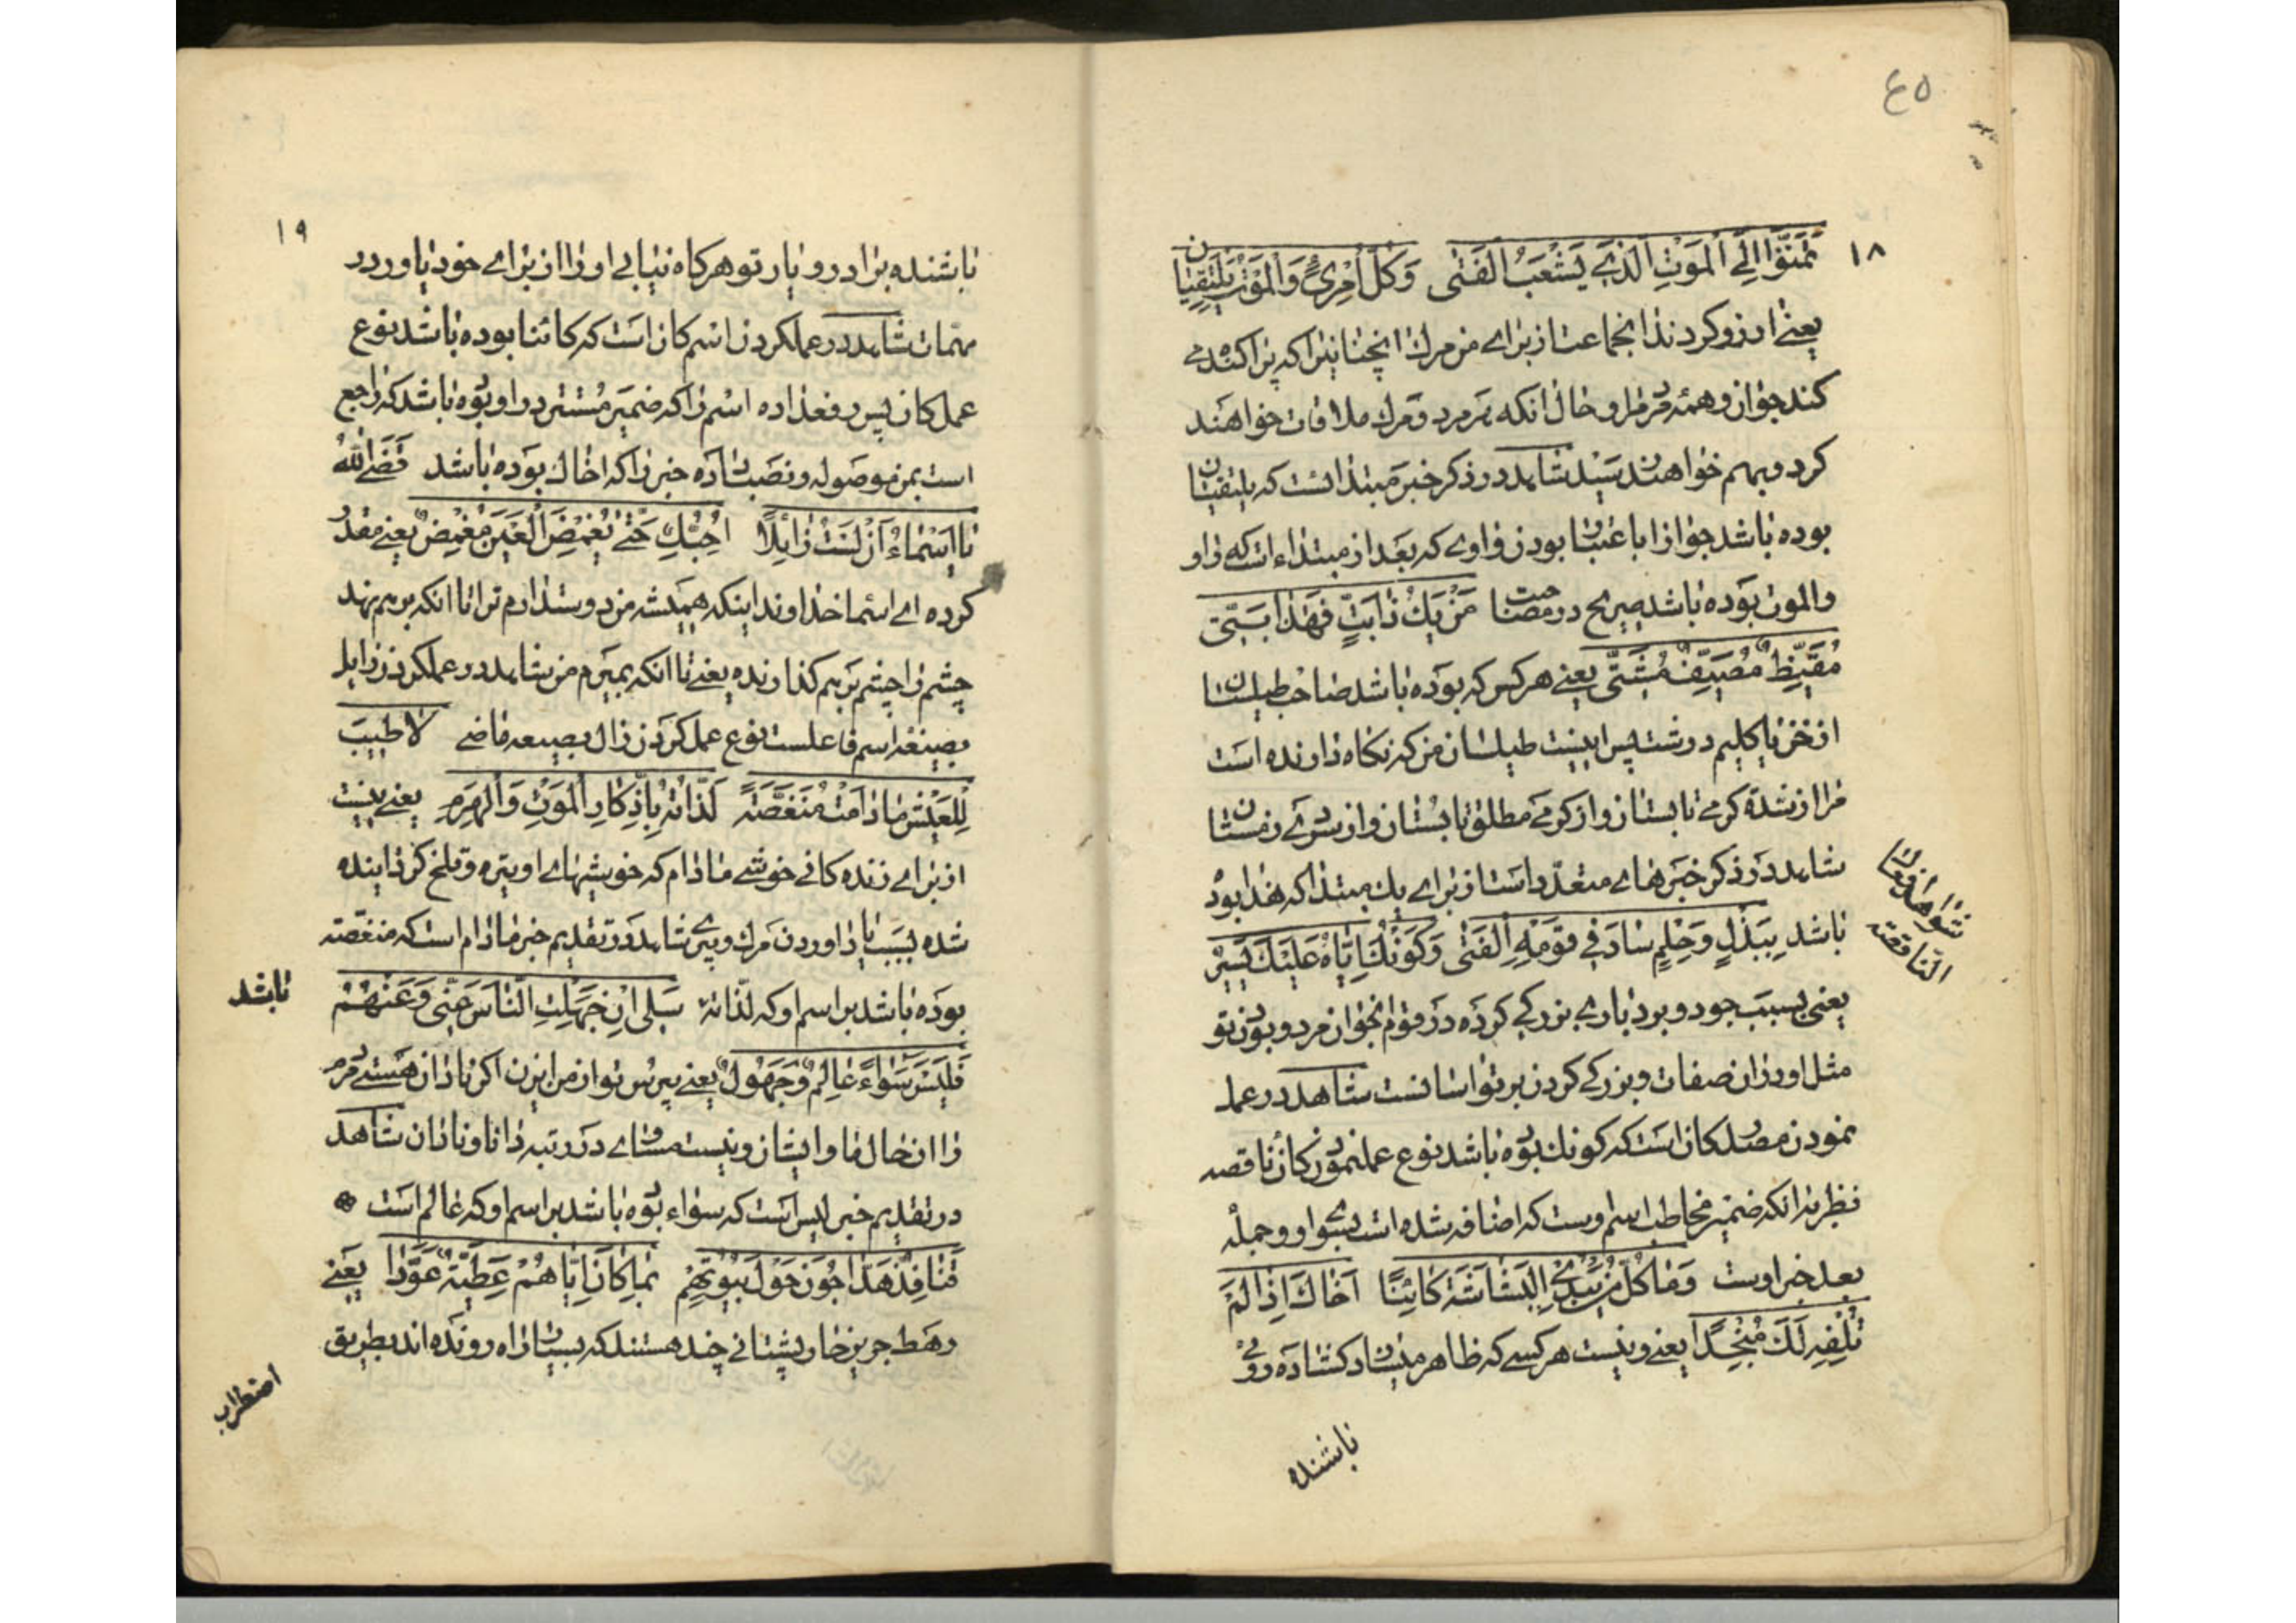 ٤٥
١٨
تَمَنَّوْا لِيَ الْمَوْتَ الَّذِي يَشْعَبُ الْفَتَى وَكُلُّ امْرِئٍ وَالْمَوْتُ يَلْتَقِيَانِ
يعنے ارزو كردند انجماعت از براے من مرك انچنانيرا كه پراكنده مے
كند جوان و همه مردم را و حال انكه هر مرد و مرك ملاقات خواهند
كرد و بهم خواهند رسيد شاهد در ذكر خبر مبتدا است كه يلتقيان
بوده باشد جوازا باعتبار بودن واوے كه بعد از مبتداء است كه واو
والموت بوده باشد صريح در مصاحبت مَنْ يَكُ ذَابَتٍّ فَهٰذَا بَتِّي
مُقَيِّظٌ مُصَيِّفٌ مُشَتِّي يعنے هر كس كه بوده باشد صاحب طيلسان
از خز يا كليم درشت پس اينست طيلسان من كه نكاه دارنده است
مرا از شدة كرمے تابستان و از كرمے مطلق تابستان و از سردے زمستان
شاهد در ذكر خبرهاے متعدد است از براے يك مبتدا كه هذا بوده
شواهد افعال
الناقصة
باشد بِبَذْلٍ وَحِلْمٍ سَادَ فِي قَوْمِهِ الْفَتَى وَكَوْنُكَ إِيَّاهُ عَلَيْكَ يَسِيرُ
يعنى بسبب جود و بردبارے بزركے كرده در قوم انجوان مرد و بودن تو
مثل او در ان صفات و بزركے كردن بر تو اسانست شاهد در عمل
نمودن مصدر كان است كه كونك بوده باشد بنوع عمل نمودن كان ناقصه
نظر بانكه ضمير مخاطب اسم اوست كه اضافه شده است بسوے او و جمله
بعد خبر اوست وَمَا كُلُّ مَنْ يُبْدِي الْبَشَاشَةَ كَائِنًا أَخَاكَ إِذَا لَمْ
تُلْفِهِ لَكَ مُنْجِدًا يعنے و نيست هر كسے كه ظاهر ميسازد كشاده روئے
باشنده
١٩
باشنده برادر و يار تو هركاه نيابے او را از براے خود ياور در
مهمات شاهد در عمل كردن اسم كان است كه كائنا بوده باشد بنوع
عمل كان پس رفع داده اسم را كه ضمير مستتر در او بوده باشد كه راجع
است بمن موصوله و نصب داده خبر را كه اخاك بوده باشد قَضَى اللهُ
يَا أَسْمَاءُ أَنْ لَسْتُ زَائِلًا أُحِبُّكِ حَتّٰى يُغْمِضَ الْعَيْنَ مُغْمِضُ يعنے مقدر
كرده اے اسما خداوند اينكه هميشه من دوست دارم ترا تا انكه بر هم نهد
چشم را چشم بر هم كذارنده يعنے تا انكه بميرم من شاهد در عمل كردن زايل
بصيغه اسم فاعلست بنوع عمل كردن زال بصيغه ماضے لَا طِيبَ
لِلْعَيْشِ مَا دَامَتْ مُنَغَّصَةً لَذَّاتُهُ بِاذِّكَارِ الْمَوْتِ وَالْهَرَمِ يعنے نيست
از براے زنده كانے خوشے مادام كه خوشيهاے او تيره و تلخ كردانيده
شده بسبب ياد اوردن مرك و پيرے شاهد در تقديم خبر مادام است كه منغصة
بوده باشد بر اسم او كه لذاته سَلِي إِنْ جَهِلْتِ النَّاسَ عَنِّي وَعَنْهُمْ
باشد
فَلَيْسَ سَوَاءً عَالِمٌ وَجَهُولُ يعنے بپرس تو از من ايزن اكر نادان هستے مردم
را از حال ما و ايشان و نيست مساوے در رتبه دانا و نادان شاهد
در تقديم خبر ليس است كه سواء بوده باشد بر اسم او كه عالم است
قَنَافِذُ هَدَّاجُونَ حَوْلَ بُيُوتِهِمْ بِمَا كَانَ إِيَّاهُمْ عَطِيَّةُ عَوَّدَا يعنے
رهط جرير خار پشتانے چند هستند كه بسيار راه رونده اند بطريق
اضطراب